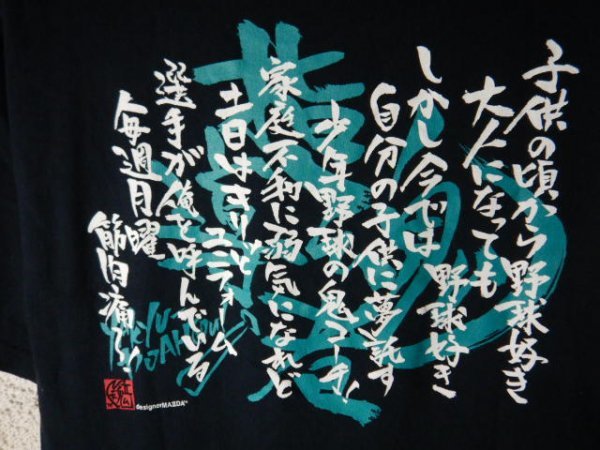 子供の頃から野球好き
大人になっても
野球好き
しかし今では
自分の子供に夢託す
少年野球の鬼コーチ!
家庭不和に弱気になれど
土日はきりっと
ユニフォーム
選手が俺を呼んでいる
毎週月曜
筋肉痛!!
designerMAEDA